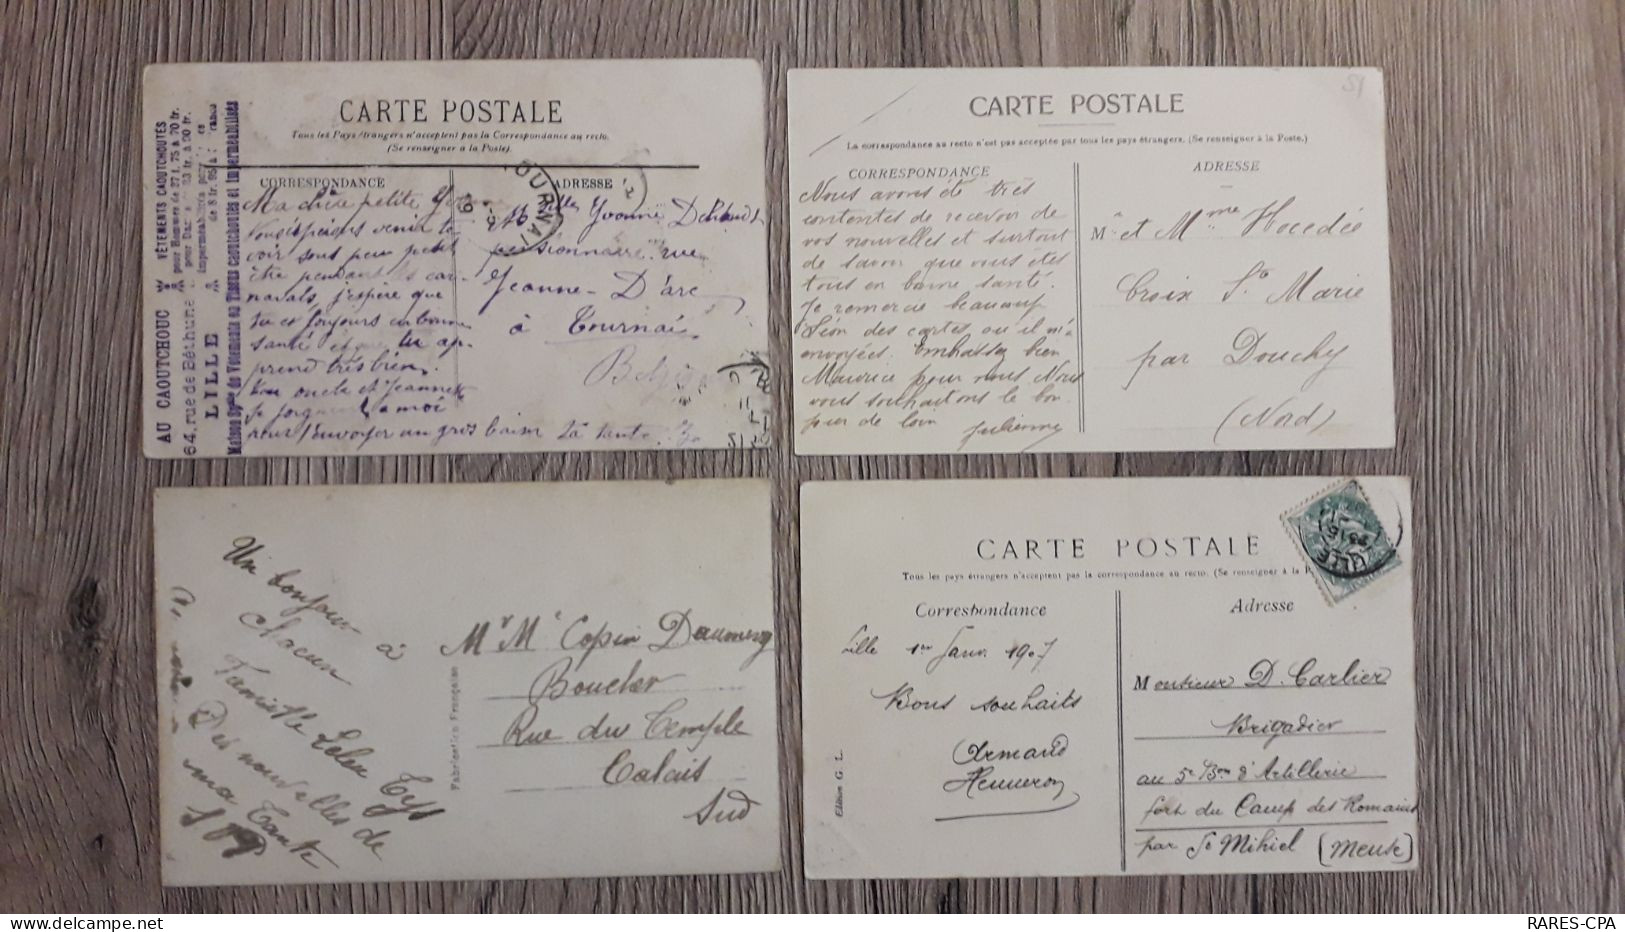 CARTE POSTALE
Tous les Pays étrangers n'acceptent pas la Correspondance au recto.
(Se renseigner à la Poste).
CORRESPONDANCE
ADRESSE
AU CAOUTCHOUC
64, rue de Béthune
LILLE
VÊTEMENTS CAOUTCHOUTÉS
pour Hommes de 27 f. 75 à 70 fr.
Maison de Vêtements en Tissus caoutchoutés et Imperméabilisés
TOURNAI
Ma chère petite
Nous espérons venir te
voir sous peu peut
être pendant les car-
navals, j'espère que
tu es toujours en bonne
santé et que tu ap-
prend très bien.
Ton oncle et Jeanne
se joignent à moi
pour t'envoyer un gros baiser Ta tante
Melles Yvonne
pensionnaire rue
Jeanne-D'arc
à Tournai
Belgique
CARTE POSTALE
La correspondance au recto n'est pas acceptée par tous les pays étrangers. (Se renseigner à la Poste.)
CORRESPONDANCE
ADRESSE
51
Nous avons été très
contentes de recevoir de
vos nouvelles et surtout
de savoir que vous êtes
tous en bonne santé.
Je remercie beaucoup
Léon des cartes qu il m'a
envoyées. Embrassez bien
Maurice pour nous Nous
vous souhaitons le bon-
jour de loin Julienne
Mr et Mme Hocedée
Croix Ste Marie
par Douchy
(Nord)
Un bonjour
à
Chacun
Famille Leleu Tys
Des nouvelles de
ma Tante
S V P
Fabrication Française
Mr Me Copin Daumery
Boucher
Rue du Temple
Calais
Sud
CARTE POSTALE
Tous les pays étrangers n'acceptent pas la correspondance au recto. (Se renseigner à la P
Correspondance
Adresse
LILLE
Lille 1er Janv. 1907
Bons souhaits
Armand
Henneron
Edition G. L.
Monsieur D. Carlier
Brigadier
au 5e Bon d'Artillerie
fort du Camp des Romains
par St Mihiel (Meuse)
RARES-CPA